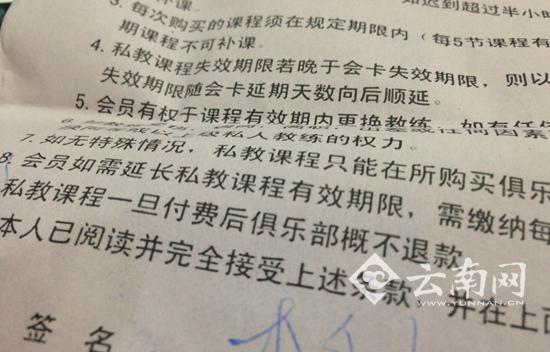 补课。
如迟到超过半小时
3. 每次购买的课程须在规定期限内（每5节课程有
期课程不可补课。
4. 私教课程失效期限若晚于会卡失效期限，则以
失效期限随会卡延期天数向后顺延。
5. 会员有权于课程有效期内更换教练，如有任何
私人教练的权力。
7. 如无特殊情况，私教课程只能在所购买俱乐
8. 会员如需延长私教课程有效期限，需缴纳每
私教课程一旦付费后俱乐部概不退款
本人已阅读并完全接受上述条款，并在上面
签 名
云南网
WWW.YUNNAN.CN